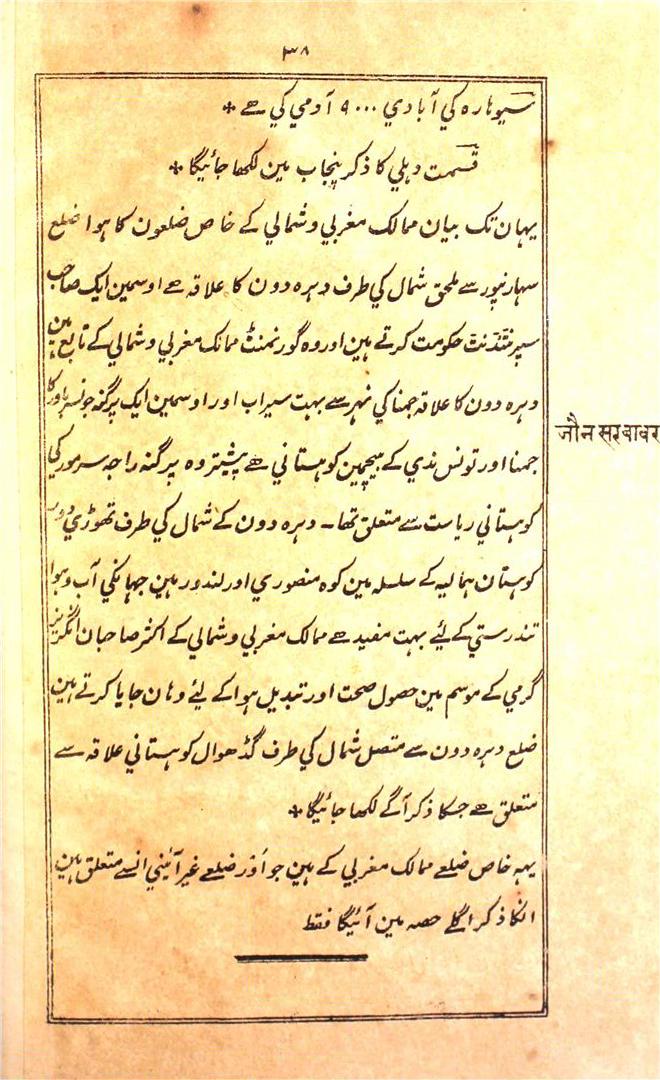 ٣٨
سیوہارہ کي آبادي ٩٠٠٠ آدمي کي ھے *
قسمت دہلي کا ذکر پنجاب مین لکھا جائیگا *
یہان تک بیان ممالک مغربي و شمالي کے خاص ضلعون کا ہوا ضلع
سہارنپور سے ملحق شمال کي طرف دہرہ دون کا علاقہ ھے اوسمین ایک صاحب
سپرنٹنڈنٹ حکومت کرتے ہین اور وہ گورنمنٹ ممالک مغربي و شمالي کے تابع ہین
دہرہ دون کا علاقہ جمنا کي نہر سے بہت سیراب اور اوسمین ایک پرگنہ جونسر باور کا
جمنا اور تونس ندي کے بیچمین کوہستاني ھے پیشتر وہ پرگنہ راجہ سرمور کي
کوہستاني ریاست سے متعلق تھا - دہرہ دون کے شمال کي طرف تھوڑي دور
کوہستان ہمالیہ کے سلسلہ مین کوہ منصوري اور لندور ہین جہانکي آب و ہوا
تندرستي کے لیئے بہت مفید ھے ممالک مغربي و شمالي کے اکثر صاحبان انگریز
گرمي کے موسم مین حصول صحت اور تبدیل ہوا کے لیئے وہان جایا کرتے ہین
ضلع دہرہ دون سے متصل شمال کي طرف گڈھوال کوہستاني علاقہ سے
متعلق ھے جسکا ذکر آگے لکھا جائیگا *
یہہ خاص ضلعے ممالک مغربي کے ہین جو اَوْر ضلعے غیر آئیني انسے متعلق ہین
انکا ذکر اگلے حصہ مین آئیگا فقط
जौनसरबावर